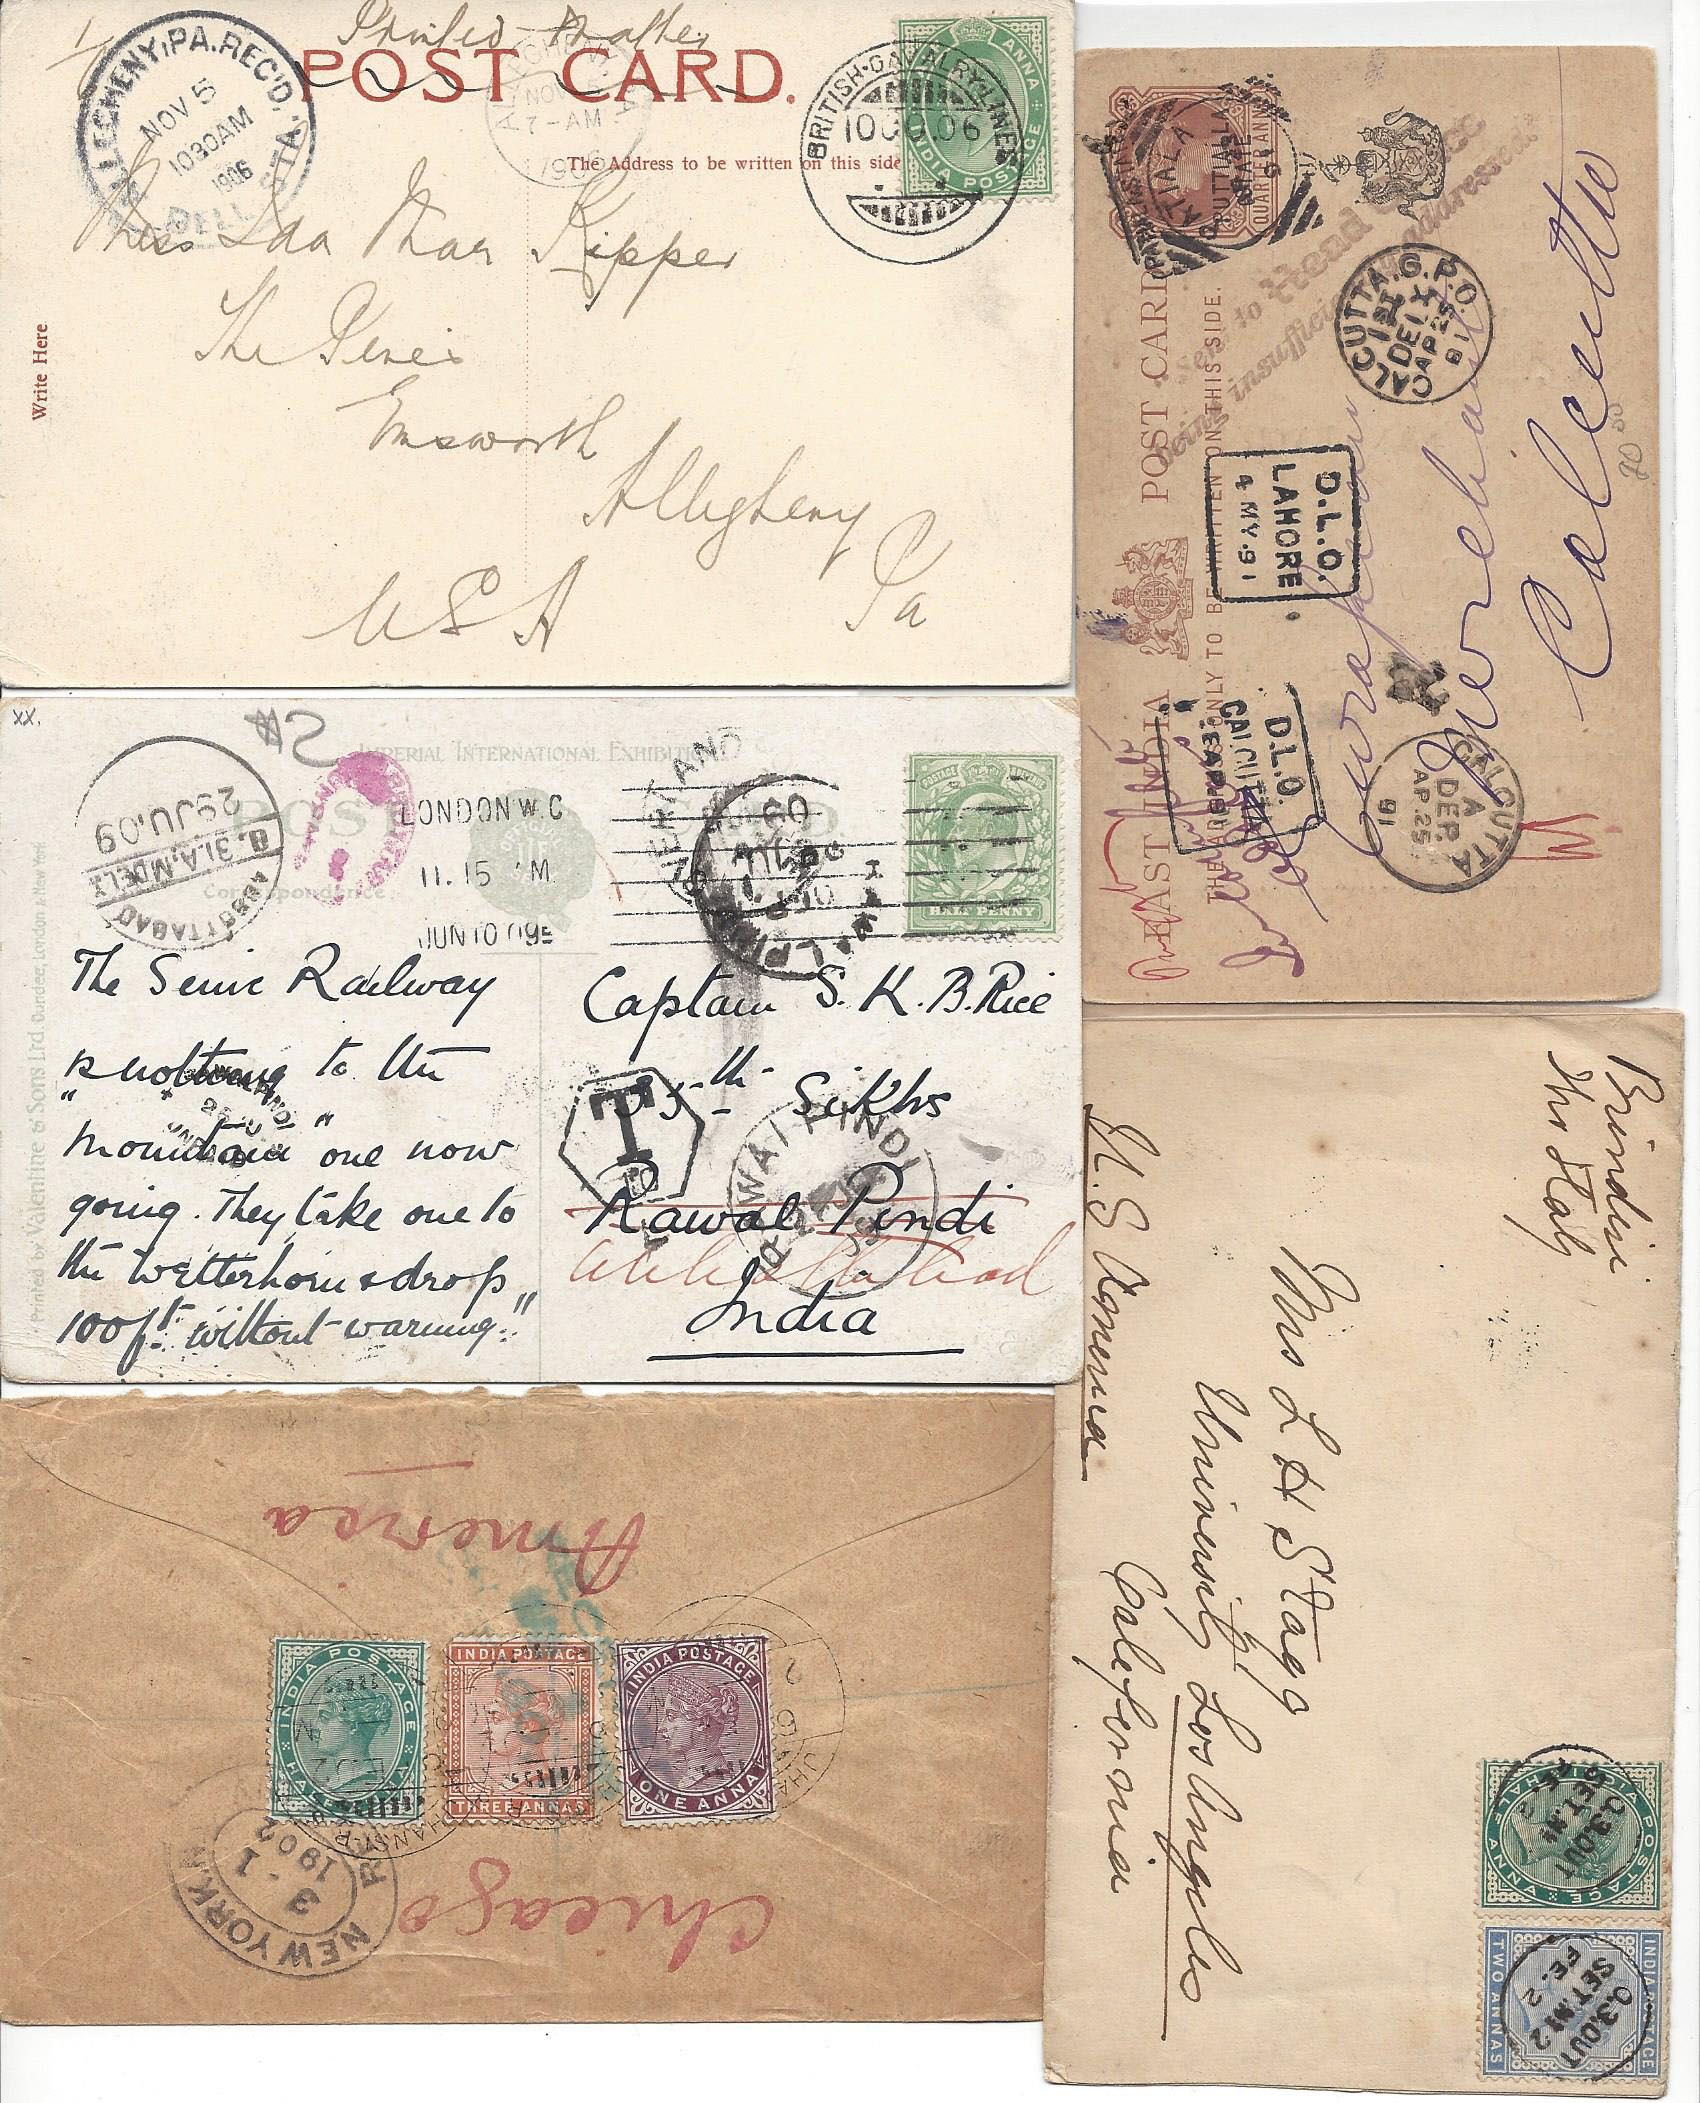 Printed Matter
POST CARD.
The Address to be written on this side
Write Here
ALLEGHENY, PA. REC'D.
NOV 5
1030AM
1906
NOV
7-AM
1906
BRITISH CAVALRY LINES
10 OC.06
ANNA
INDIA POSTAGE
Miss Ida Mar Kipper
The Pines
Emsworth
Allegheny
Pa
USA
XX.
IMPERIAL INTERNATIONAL EXHIBITION
POST CARD
Correspondence
Printed by Valentine & Sons Ltd Dundee, London & New York
ABBOTTABAD
8.31A.M DEL
29JU.09
LONDON W.C
11.15 M
JUN 10 09
POSTAGE
HALF PENNY
The Scenic Railway
is nothing to the
"mountain" one now
going. They take one to
the Wetterhorn & drop
100ft. without warning."
Captain S. K. B. Rice
35th Sikhs
Rawal Pindi
Abbottabad
India
T
RAWALPINDI
America
INDIA POSTAGE
HALF ANNA
INDIA POSTAGE
THREE ANNAS
INDIA POSTAGE
ONE ANNA
NEW YORK
3 - 1
1902
Chicago
EAST INDIA POST CARD
THE ADDRESS ONLY TO BE WRITTEN ON THIS SIDE.
QUARTER ANNA
PUTTIALLA
STATE
Sent to Head Office
being insufficiently addressed
CALCUTTA.G.P.O.
1ST DELY
AP 25
91
D.L.O.
LAHORE
4 MY.91
D.L.O.
CALCUTTA
CALCUTTA
A
DEP.
AP.25
91
merchant
Calcutta
Brindisi
Mrs Stagg
Mrs L H Stagg
University Los Angeles
California
U.S America
INDIA POSTAGE
HALF ANNA
O.3.OUT
INDIA POSTAGE
TWO ANNAS
O.3.OUT
SET.No 2
FE.2